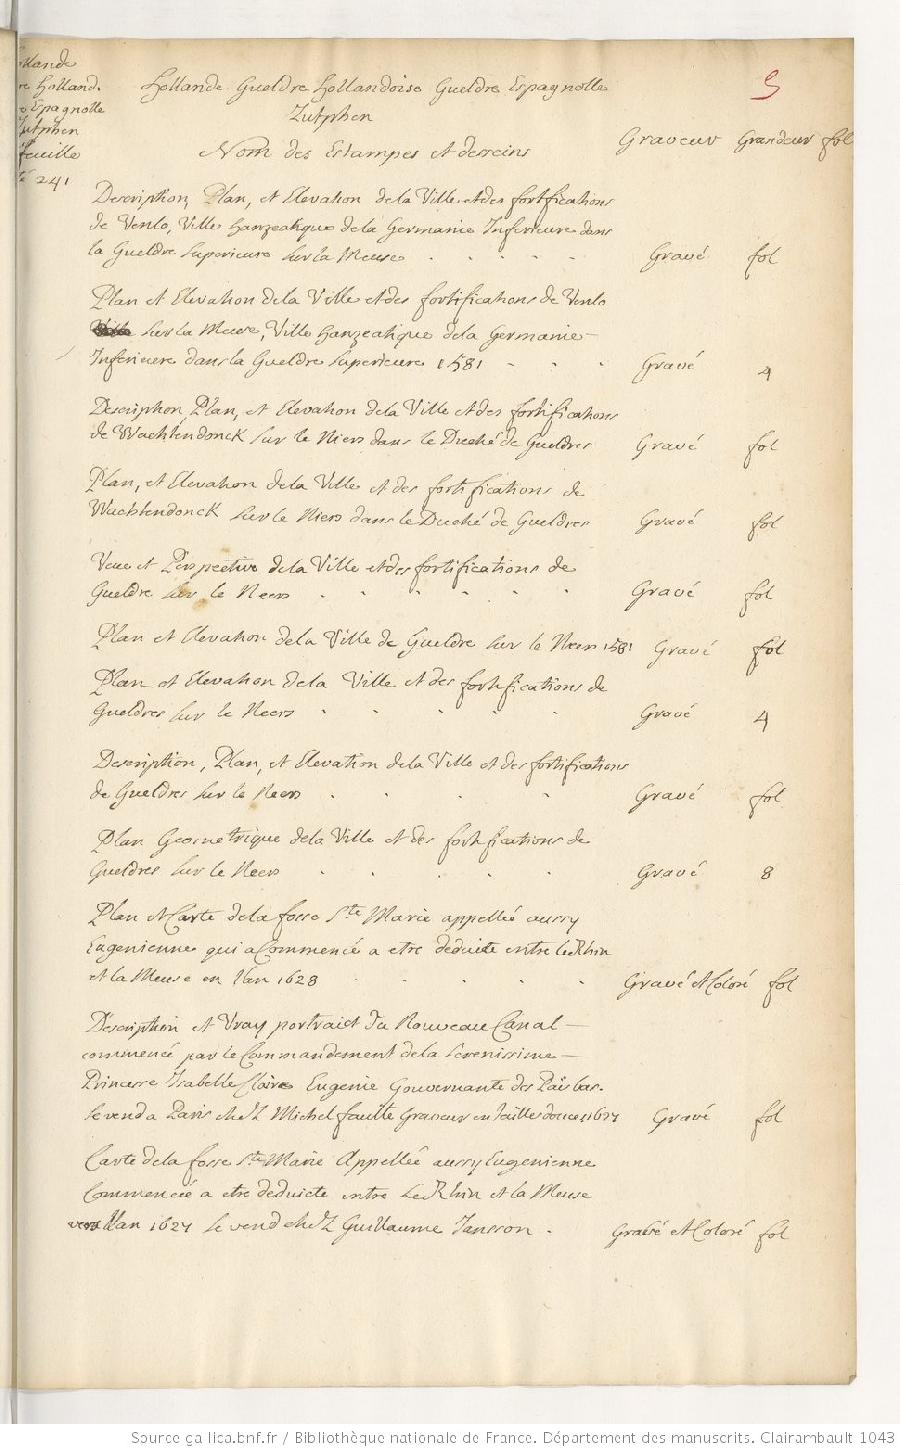 Hollande Gueldre Hollandoise Gueldre Espagnolle
Zutphen
5
Nom des Estampes et desseins Graveur Grandeur fol
ollande
re Holland.
e Espagnolle
Zutphen
feuille
241
Description, Plan, et Elevation de la Ville et des fortifications
de Venlo, Ville hanzeatique de la Germanie Inferieure dans
la Gueldre Superieure sur la Meuse . . . . . Gravé fol
Plan et Elevation de la Ville et des fortifications de Venlo
sur la Meuse, Ville hanzeatique de la Germanie
Inferieure dans la Gueldre Superieure 1581 . . . Gravé 4
Description, Plan, et Elevation de la Ville et des fortifications
de Wachtendonck sur le Niers dans le Duché de Gueldres Gravé fol
Plan, et Elevation de la Ville et des fortifications de
Wachtendonck sur le Niers dans le Duché de Gueldres Gravé fol
Veue et Perspective de la Ville et des fortifications de
Gueldre sur le Neers . . . . . . Gravé fol
Plan et Elevation de la Ville de Gueldre sur le Neers 1581 Gravé fol
Plan et Elevation de la Ville et des fortifications de
Gueldres sur le Neers . . . . . Gravé 4
Description, Plan, et Elevation de la Ville et des fortifications
de Gueldres sur le Neers . . . . Gravé fol
Plan Geometrique de la Ville et des fortifications de
Gueldres sur le Neers . . . . . Gravé 8
Plan et Carte de la fosse Ste Marie appellée aussy
Eugenienne qui a Commencé a etre deduite entre le Rhin
et la Meuse en l'an 1628 . . . . . Gravé et Coloré fol
Description et Vray portraict du Nouveau Canal
commencé par le Commandement de la Serenissime
Princesse Isabelle Claire Eugenie Gouvernante des Païsbas.
se vend a Paris chez Michel faulte Graveur en taille douce, 1627 Gravé fol
Carte de la fosse Ste Marie Appellée aussy Eugenienne
Commencée a etre deduicte entre le Rhin et la Meuse
vers l'an 1627 se vend chez Guillaume Jansson . Gravé et Coloré fol
Source gallica.bnf.fr / Bibliothèque nationale de France. Département des manuscrits. Clairambault 1043